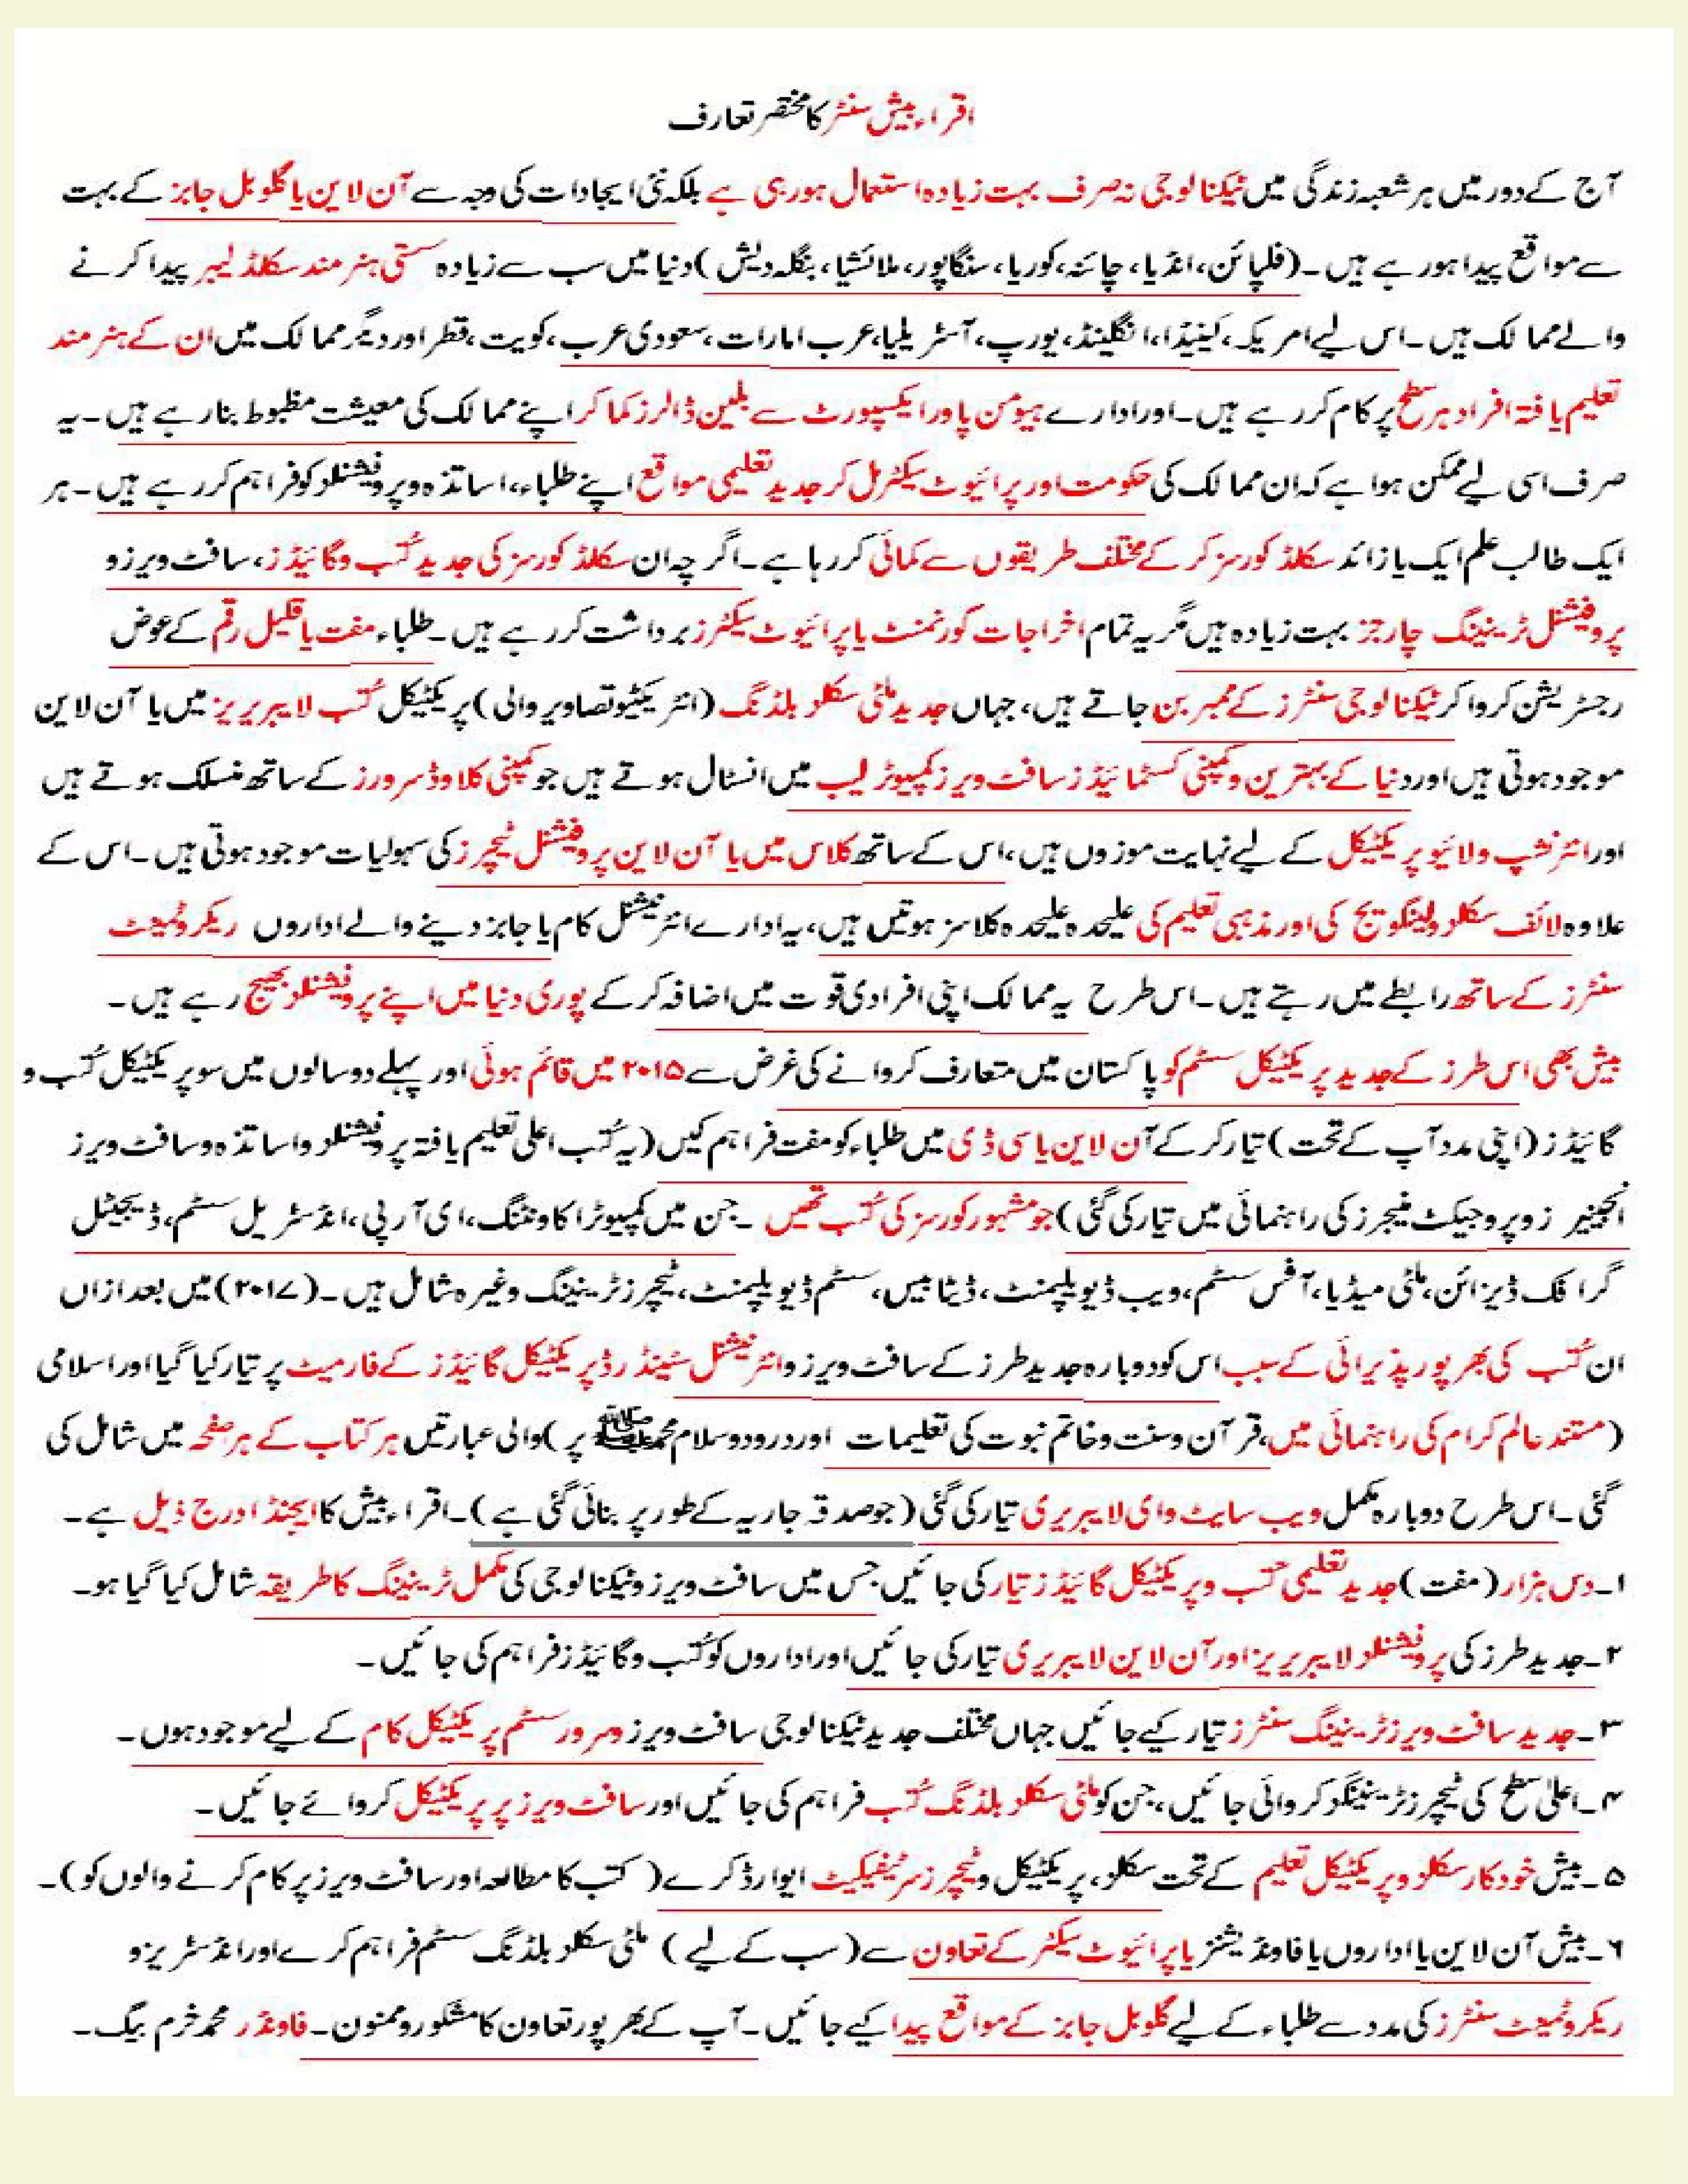 اقراء بیش سنٹر کا مختصر تعارف
آج کے دور میں ہر شعبہ زندگی میں ٹیکنالوجی نہ صرف بہت زیادہ استعمال ہو رہی ہے بلکہ نئی ایجادات کی وجہ سے آن لاین یا گلوبل جابز کے بہت
سے مواقع پیدا ہو رہے ہیں۔ (فلپائن، انڈیا، چائنہ، کوریا، سنگاپور، ملائشیا، بنگلہ دیش) دنیا میں سب سے زیادہ سستی ہنر مند سکلڈ لیبر پیدا کرنے
والے ممالک ہیں۔ اس لیے امریکہ، کینیڈا، انگلینڈ، یورپ، آسٹریلیا، عرب امارات، سعودی عرب، کویت، قطر اور دیگر ممالک میں ان کے ہنر مند
تعلیم یافتہ افراد ہر سطح پر کام کر رہے ہیں۔ اور ادارے ہیومن پاور ایکسپورٹ سے بلین ڈالرز کما کر اپنے ممالک کی معیشت مظبوط بنا رہے ہیں۔ یہ
صرف اسی لیے ممکن ہوا ہے کہ ان ممالک کی حکومت اور پرائیوٹ سیکٹر مل کر جدید تعلیمی مواقع اپنے طلباء، اساتذہ و پروفیشنلز کو فراہم کر رہے ہیں۔ ہر
ایک طالب علم ایک یا زائد سکلڈ کورسز کر کے مختلف طریقوں سے کمائی کر رہا ہے۔ اگر چہ ان سکلڈ کورسز کی جدید کُتب و گائیڈز، سافٹ ویرز و
پروفیشنل ٹریننگ چارجز بہت زیادہ ہیں مگر یہ تمام اخراجات گورنمنٹ یا پرائیوٹ سیکٹرز برداشت کر رہے ہیں۔ طلباء مفت یا قلیل رقم کے عوض
رجسٹریشن کروا کر ٹیکنالوجی سنٹرز کے ممبر بن جاتے ہیں، جہاں جدید ملٹی سکلز بلڈنگ (انٹریکٹیو تصاویر والی) پریکٹیکل کُتب لایبریریز میں یا آن لاین
موجود ہوتی ہیں اور دنیا کے بہترین و کمپنی کسٹمائیڈز سافٹ ویرز کمپیوٹر لیب میں انسٹال ہوتے ہیں جو کمپنی کلاوڈ سرورز کے ساتھ منسلک ہوتے ہیں
اور انٹرنشپ و لائیو پریکٹیکل کے لیے نہایت موزوں ہیں، اس کے ساتھ کلاس میں یا آن لاین پروفیشنل ٹیچرز کی سہولیات موجود ہوتی ہیں۔ اس کے
علاوہ لائف سکلز و لینگویج کی اور مذہبی تعلیم کی علیحدہ علیحدہ کلاسز ہوتیں ہیں، یہ ادارے انٹرنیشنل کام یا جابز دینے والے اداروں ریکروٹمینٹ
سنٹرز کے ساتھ رابطے میں رہتے ہیں۔ اس طرح یہ ممالک اپنی افرادی قوت میں اضافہ کر کے پوری دنیا میں اپنے پروفیشنلز بھیج رہے ہیں۔
بیش بھی اس طرز کے جدید پریکٹیکل سسٹم کو پاکستان میں متعارف کروانے کی غرض سے ۲۰۱۵ میں قائم ہوئی اور پہلے دو سالوں میں سو پریکٹیکل کُتب و
گائیڈز (اپنی مدد آپ کے تحت) تیار کر کے آن لاین یا سی ڈی میں طلباء کو مفت فراہم کیں (یہ کُتب اعلی تعلیم یافتہ پروفیشنلز و اساتذہ و سافٹ ویرز
انجینیرز و پروجیکٹ منیجرز کی راہنمائی میں تیار کی گئی) جو مشہور کورسز کی کُتب تھیں ۔ جن میں کمپیوٹر اکاونٹنگ، ای آر پی، انڈسٹریل سسٹم، ڈیجیٹل
گرافک ڈیزائن، ملٹی میڈیا، آفس سسٹم، ویب ڈیولپمنٹ، ڈیٹابیس، سسٹم ڈیولپمنٹ، ٹیچرز ٹریننگ وغیرہ شامل ہیں۔ (۲۰۱۷) میں بعد ازاں
ان کُتب کی بھر پور پذیرائی کے سبب اس کو دوبارہ جدید طرز کے سافٹ ویرز و انٹرنیشنل سٹینڈرڈ پریکٹیکل گائیڈز کے فارمیٹ پر تیار کیا گیا اور اسلامی
(مستند عالم کرام کی راہنمائی میں، قرآن و سنت و خاتم نبوت کی تعلیمات اور درود و سلام محمد ﷺ پر) والی عبارتیں ہر کتاب کے ہر صفحہ میں شامل کی
گئی۔ اس طرح دوبارہ مکمل ویب سایٹ وای لایبریری تیار کی گئی (جو صدقہ جاریہ کے طور پر بنائی گئی ہے)۔ اقراء بیش کا ایجنڈا درج ذیل ہے۔
۱۔ دس ہزار (مفت) جدید تعلیمی کتب و پریکٹیکل گائیڈز تیار کی جائیں جس میں سافٹ ویرز و ٹیکنالوجی کی مکمل ٹریننگ کا طریقہ شامل کیا گیا ہو۔
۲۔ جدید طرز کی پروفیشنلز لایبریریز اور آن لاین لایبریری تیار کی جائیں اور اداروں کو کُتب و گائیڈز فراہم کی جائیں۔
۳۔ جدید سافٹ ویرز ٹریننگ سنٹرز تیار کیے جائیں جہاں مختلف جدید ٹیکنالوجی سافٹ ویرز و سرور سسٹم پریکٹیکل کام کے لیے موجود ہوں۔
۴۔ اعلیٰ سطح کی ٹیچرز ٹریننگز کروائی جائیں، جن کو ملٹی سکلز بلڈنگ کُتب فراہم کی جائیں اور سافٹ ویرز پر پریکٹیکل کروائے جائیں۔
۵۔ بیش خودکار سکلز و پریکٹیکل تعلیم کے تحت سکلز، پریکٹیکل و ٹیچرز سرٹیفیکیٹ ایوارڈ کرے (کتب کا مطالعہ اور سافٹ ویرز پر کام کرنے والوں کو)۔
۶۔ بیش آن لاین یا اداروں یا فاونڈیشنز یا پرائیوٹ سیکٹر کے تعاون سے (سب کے لیے) ملٹی سکلز بلڈنگ سسٹم فراہم کرے اور انڈسٹریز و
ریکروٹمینٹ سنٹرز کی مدد سے طلباء کے لیے گلوبل جابز کے مواقع پیدا کیے جائیں۔ آپ کے بھر پور تعاون کا مشکور و ممنون۔ فاونڈر محمد خرم بیگ۔